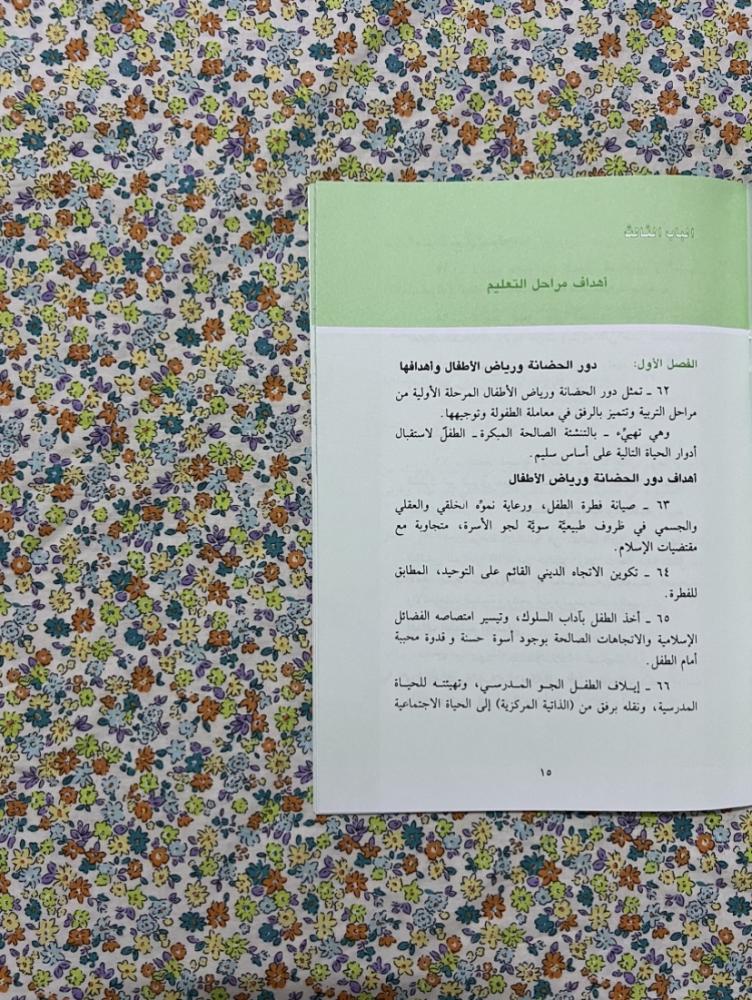 الباب الثالث
أهداف مراحل التعليم
الفصل الأول: دور الحضانة ورياض الأطفال وأهدافها
٦٢ ـ تمثل دور الحضانة ورياض الأطفال المرحلة الأولية من
مراحل التربية وتتميز بالرفق في معاملة الطفولة وتوجيهها.
وهي تهيِّء ـ بالتنشئة الصالحة المبكرة ـ الطفلَ لاستقبال
أدوار الحياة التالية على أساس سليم.
أهداف دور الحضانة ورياض الأطفال
٦٣ ـ صيانة فطرة الطفل، ورعاية نموّه الخلقي والعقلي
والجسمي في ظروف طبيعيّة سويّة لجو الأسرة، متجاوبة مع
مقتضيات الإسلام.
٦٤ ـ تكوين الاتجاه الديني القائم على التوحيد، المطابق
للفطرة.
٦٥ ـ أخذ الطفل بآداب السلوك، وتيسير امتصاصه الفضائل
الإسلامية والاتجاهات الصالحة بوجود أسوة حسنة و قدوة محببة
أمام الطفل.
٦٦ ـ إيلاف الطفل الجو المدرسي، وتهيئته للحياة
المدرسية، ونقله برفق من (الذاتية المركزية) إلى الحياة الاجتماعية
١٥